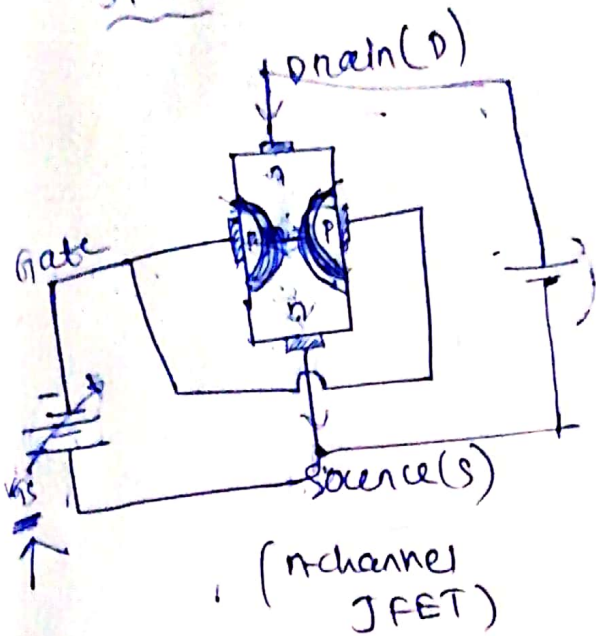 Drain(D)
n
Gate
P
P
n
VGS
Source(S)
(n-channel
JFET)